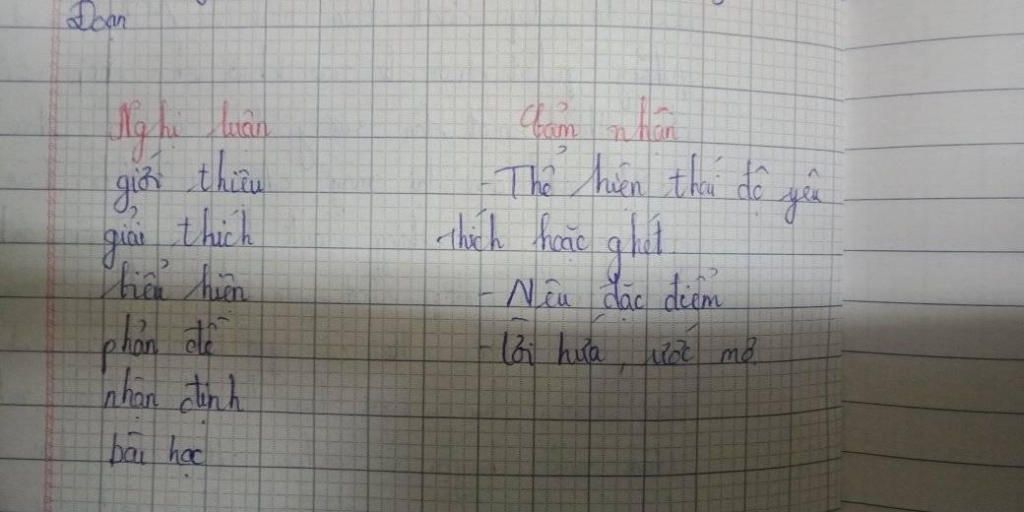 Đoạn
Nghị luận
giới thiệu
giải thích
biểu hiện
phản đề
nhận định
bài học
Cảm nhận
- Thể hiện thái độ yêu
thích hoặc ghét
- Nêu đặc điểm
- Lời hứa, ước mơ